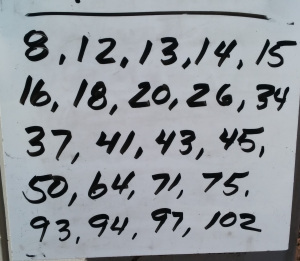 8, 12, 13, 14, 15
16, 18, 20, 26, 34
37, 41, 43, 45,
50, 64, 71, 75.
93, 94, 97, 102